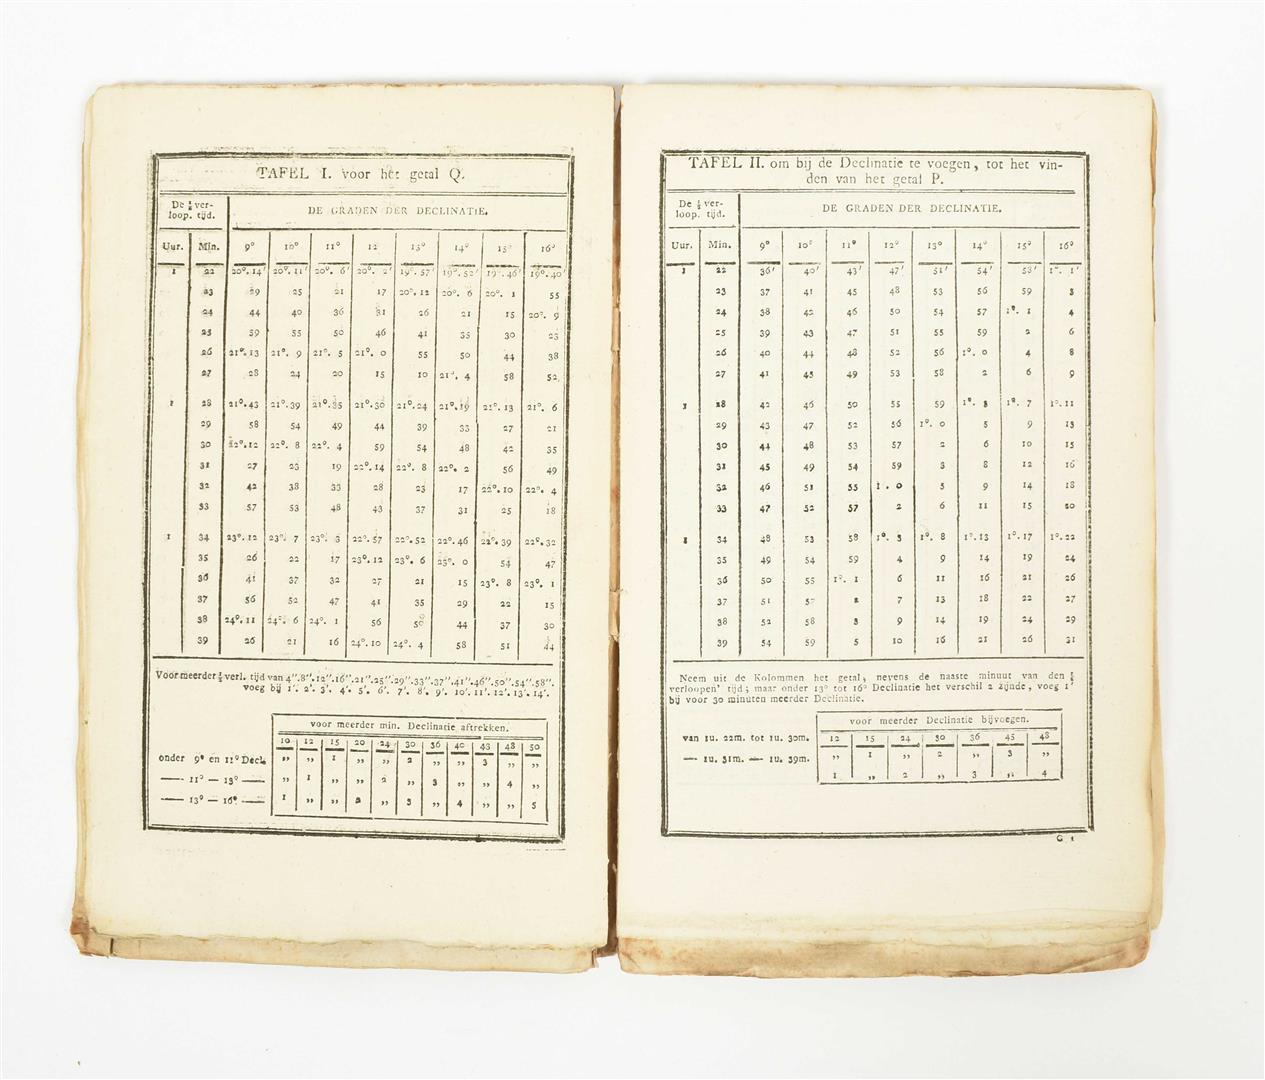 TAFEL I. voor het getal Q.
De ½ ver-
loop. tijd. DE GRADEN DER DECLINATIE.
Uur. Min. 9° 10° 11° 12 13° 14° 15° 16°
1 22 20°.14' 20°.11' 20°. 6' 20°. 2' 19°.57' 19°.52' 19°.46' 19°.40'
23 29 25 21 17 20°.12 20°. 6 20°. 1 55
24 44 40 36 31 26 21 15 20°. 9
25 59 55 50 46 41 35 30 23
26 21°.13 21°. 9 21°. 5 21°. 0 55 50 44 38
27 28 24 20 15 10 21°. 4 58 52
1 28 21°.43 21°.39 21°.35 21°.30 21°.24 21°.19 21°.13 21°. 6
29 58 54 49 44 39 33 27 21
30 22°.12 22°. 8 22°. 4 59 54 48 42 35
31 27 23 19 22°.14 22°. 8 22°. 2 56 49
32 42 38 33 28 23 17 22°.10 22°. 4
33 57 53 48 43 37 31 25 18
1 34 23°.12 23°. 7 23°. 3 22°.57 22°.52 22°.46 22°.39 22°.32
35 26 22 17 23°.12 23°. 6 23°. 0 54 47
36 41 37 32 27 21 15 23°. 8 23°. 1
37 56 52 47 41 35 29 22 15
38 24°.11 24°. 6 24°. 1 56 50 44 37 30
39 26 21 16 24°.10 24°. 4 58 51 44
Voor meerder ½ verl. tijd van 4''.8''.12''.16''.21''.25''.29''.33''.37''.41''.46''.50''.54''.58''.
voeg bij 1'. 2'. 3'. 4'. 5'. 6'. 7'. 8'. 9'. 10'. 11'. 12'. 13'. 14'.
voor meerder min. Declinatie aftrekken.
10 12 15 20 24 30 36 40 43 48 50
onder 9° en 11° Decl. ,, ,, 1 ,, ,, 2 ,, ,, 3 ,, ,,
— 11° — 13° — ,, 1 ,, ,, 2 ,, 3 ,, ,, 4 ,,
— 13° — 16° — 1 ,, ,, 2 ,, 3 ,, 4 ,, ,, 5
TAFEL II. om bij de Declinatie te voegen, tot het vin-
den van het getal P.
De ½ ver-
loop. tijd. DE GRADEN DER DECLINATIE.
Uur. Min. 9° 10° 11° 12° 13° 14° 15° 16°
1 22 36' 40' 43' 47' 51' 54' 58' 1°. 1'
23 37 41 45 48 53 56 59 3
24 38 42 46 50 54 57 1°. 1 4
25 39 43 47 51 55 59 2 6
26 40 44 48 52 56 1°. 0 4 8
27 41 45 49 53 58 2 6 9
1 28 42 46 50 55 59 1°. 3 1°. 7 1°.11
29 43 47 52 56 1°. 0 5 9 13
30 44 48 53 57 2 6 10 15
31 45 49 54 59 3 8 12 16
32 46 51 55 1 . 0 5 9 14 18
33 47 52 57 2 6 11 15 20
1 34 48 53 58 1°. 3 1°. 8 1°.13 1°.17 1°.22
35 49 54 59 4 9 14 19 24
36 50 55 1°. 1 6 11 16 21 26
37 51 57 2 7 13 18 22 27
38 52 58 3 9 14 19 24 29
39 54 59 5 10 16 21 26 31
Neem uit de Kolommen het getal, nevens de naaste minuut van den ½
verloopen' tijd; maar onder 13° tot 16° Declinatie het verschil 2 zijnde, voeg 1'
bij voor 30 minuten meerder Declinatie.
voor meerder Declinatie bijvoegen.
12 15 24 30 36 45 48
van 1u. 22m. tot 1u. 30m. ,, 1 ,, 2 ,, 3 ,,
— 1u. 31m. — 1u. 39m. 1 ,, 2 ,, 3 ,, 4